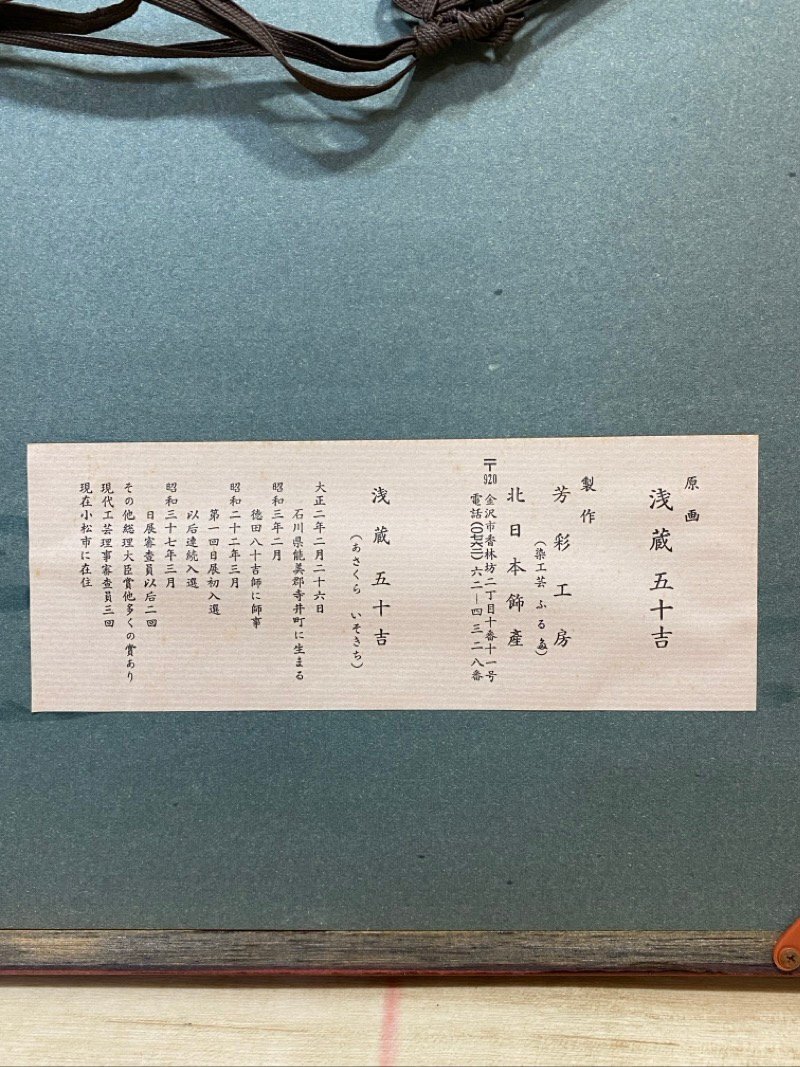 原画
浅蔵五十吉
製作
芳彩工房
(染工芸 ふる㐂)
北日本飾産
〒920 金沢市香林坊二丁目十番十一号
電話(0762)六二―四三二八番
浅蔵五十吉
(あさくら いそきち)
大正二年二月二十六日
石川県能美郡寺井町に生まる
昭和三年二月
徳田八十吉師に師事
昭和二十二年三月
第一回日展初入選
以后連続入選
昭和三十七年三月
日展審査員以后二回
その他総理大臣賞他多くの賞あり
現代工芸理事審査員三回
現在小松市に在住